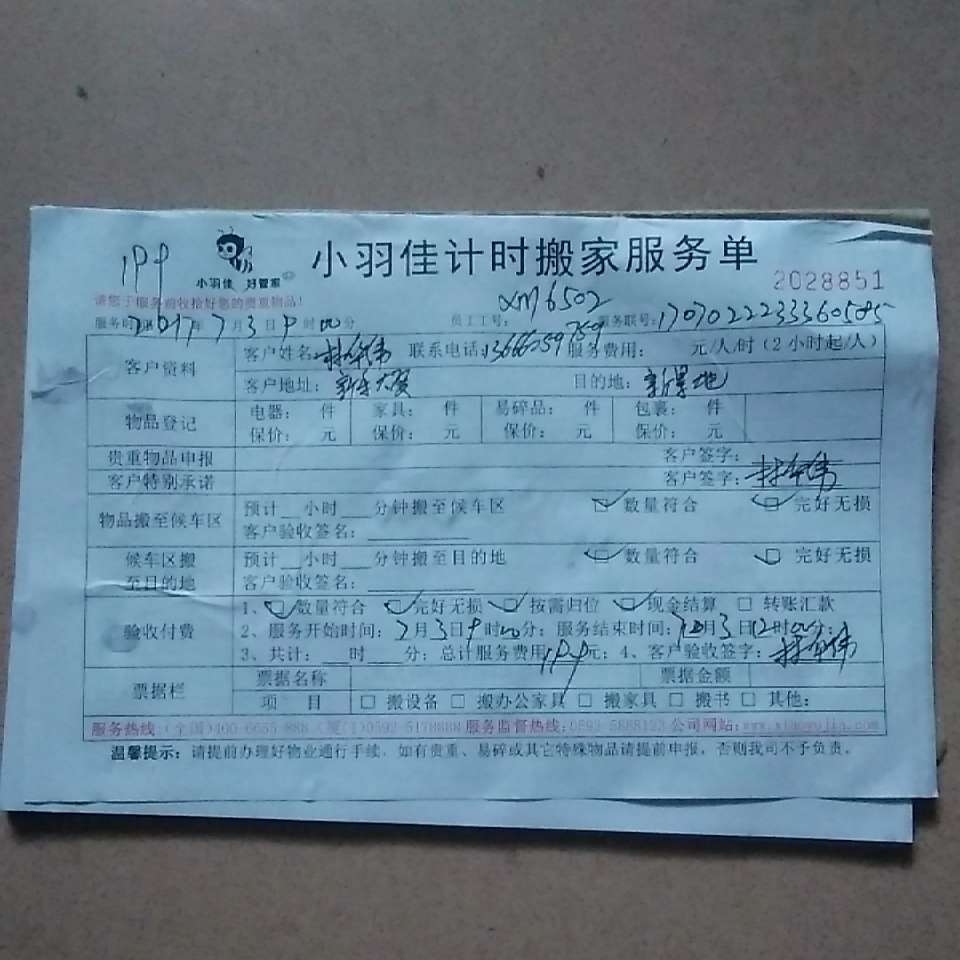 199
小羽佳 好管家
小羽佳计时搬家服务单
2028851
请您于服务前收拾好您的贵重物品!
服务时间:2017年7月3日9时00分 员工工号:XM6502 服务联号:1707022233360585
客户资料 客户姓名:林 伟 联系电话:13666059759 服务费用: 元/人/时(2小时起/人)
客户地址: 目的地:
物品登记 电器: 件 家具: 件 易碎品: 件 包裹: 件
保价: 元 保价: 元 保价: 元 保价: 元
贵重物品申报 客户签字:
客户特别承诺 客户签字:林 伟
物品搬至候车区 预计__小时___分钟搬至候车区 数量符合 完好无损
客户验收签名:
候车区搬至目的地 预计__小时___分钟搬至目的地 数量符合 完好无损
客户验收签名:
验收付费 1、数量符合 完好无损 按需归位 现金结算 转账汇款
2、服务开始时间:7月3日9时00分;服务结束时间:7月3日12时00分;
3、共计:___时___分;总计服务费用199元;4、客户验收签字:林 伟
票据栏 票据名称 票据金额
项目 搬设备 搬办公家具 搬家具 搬书 其他:
服务热线:(全国)400-6655-888 (厦门)0592-5178888 服务监督热线:0592-5888123 公司网站:www.xiaoyujia.com
温馨提示:请提前办理好物业通行手续,如有贵重、易碎或其它特殊物品请提前申报,否则我司不予负责。